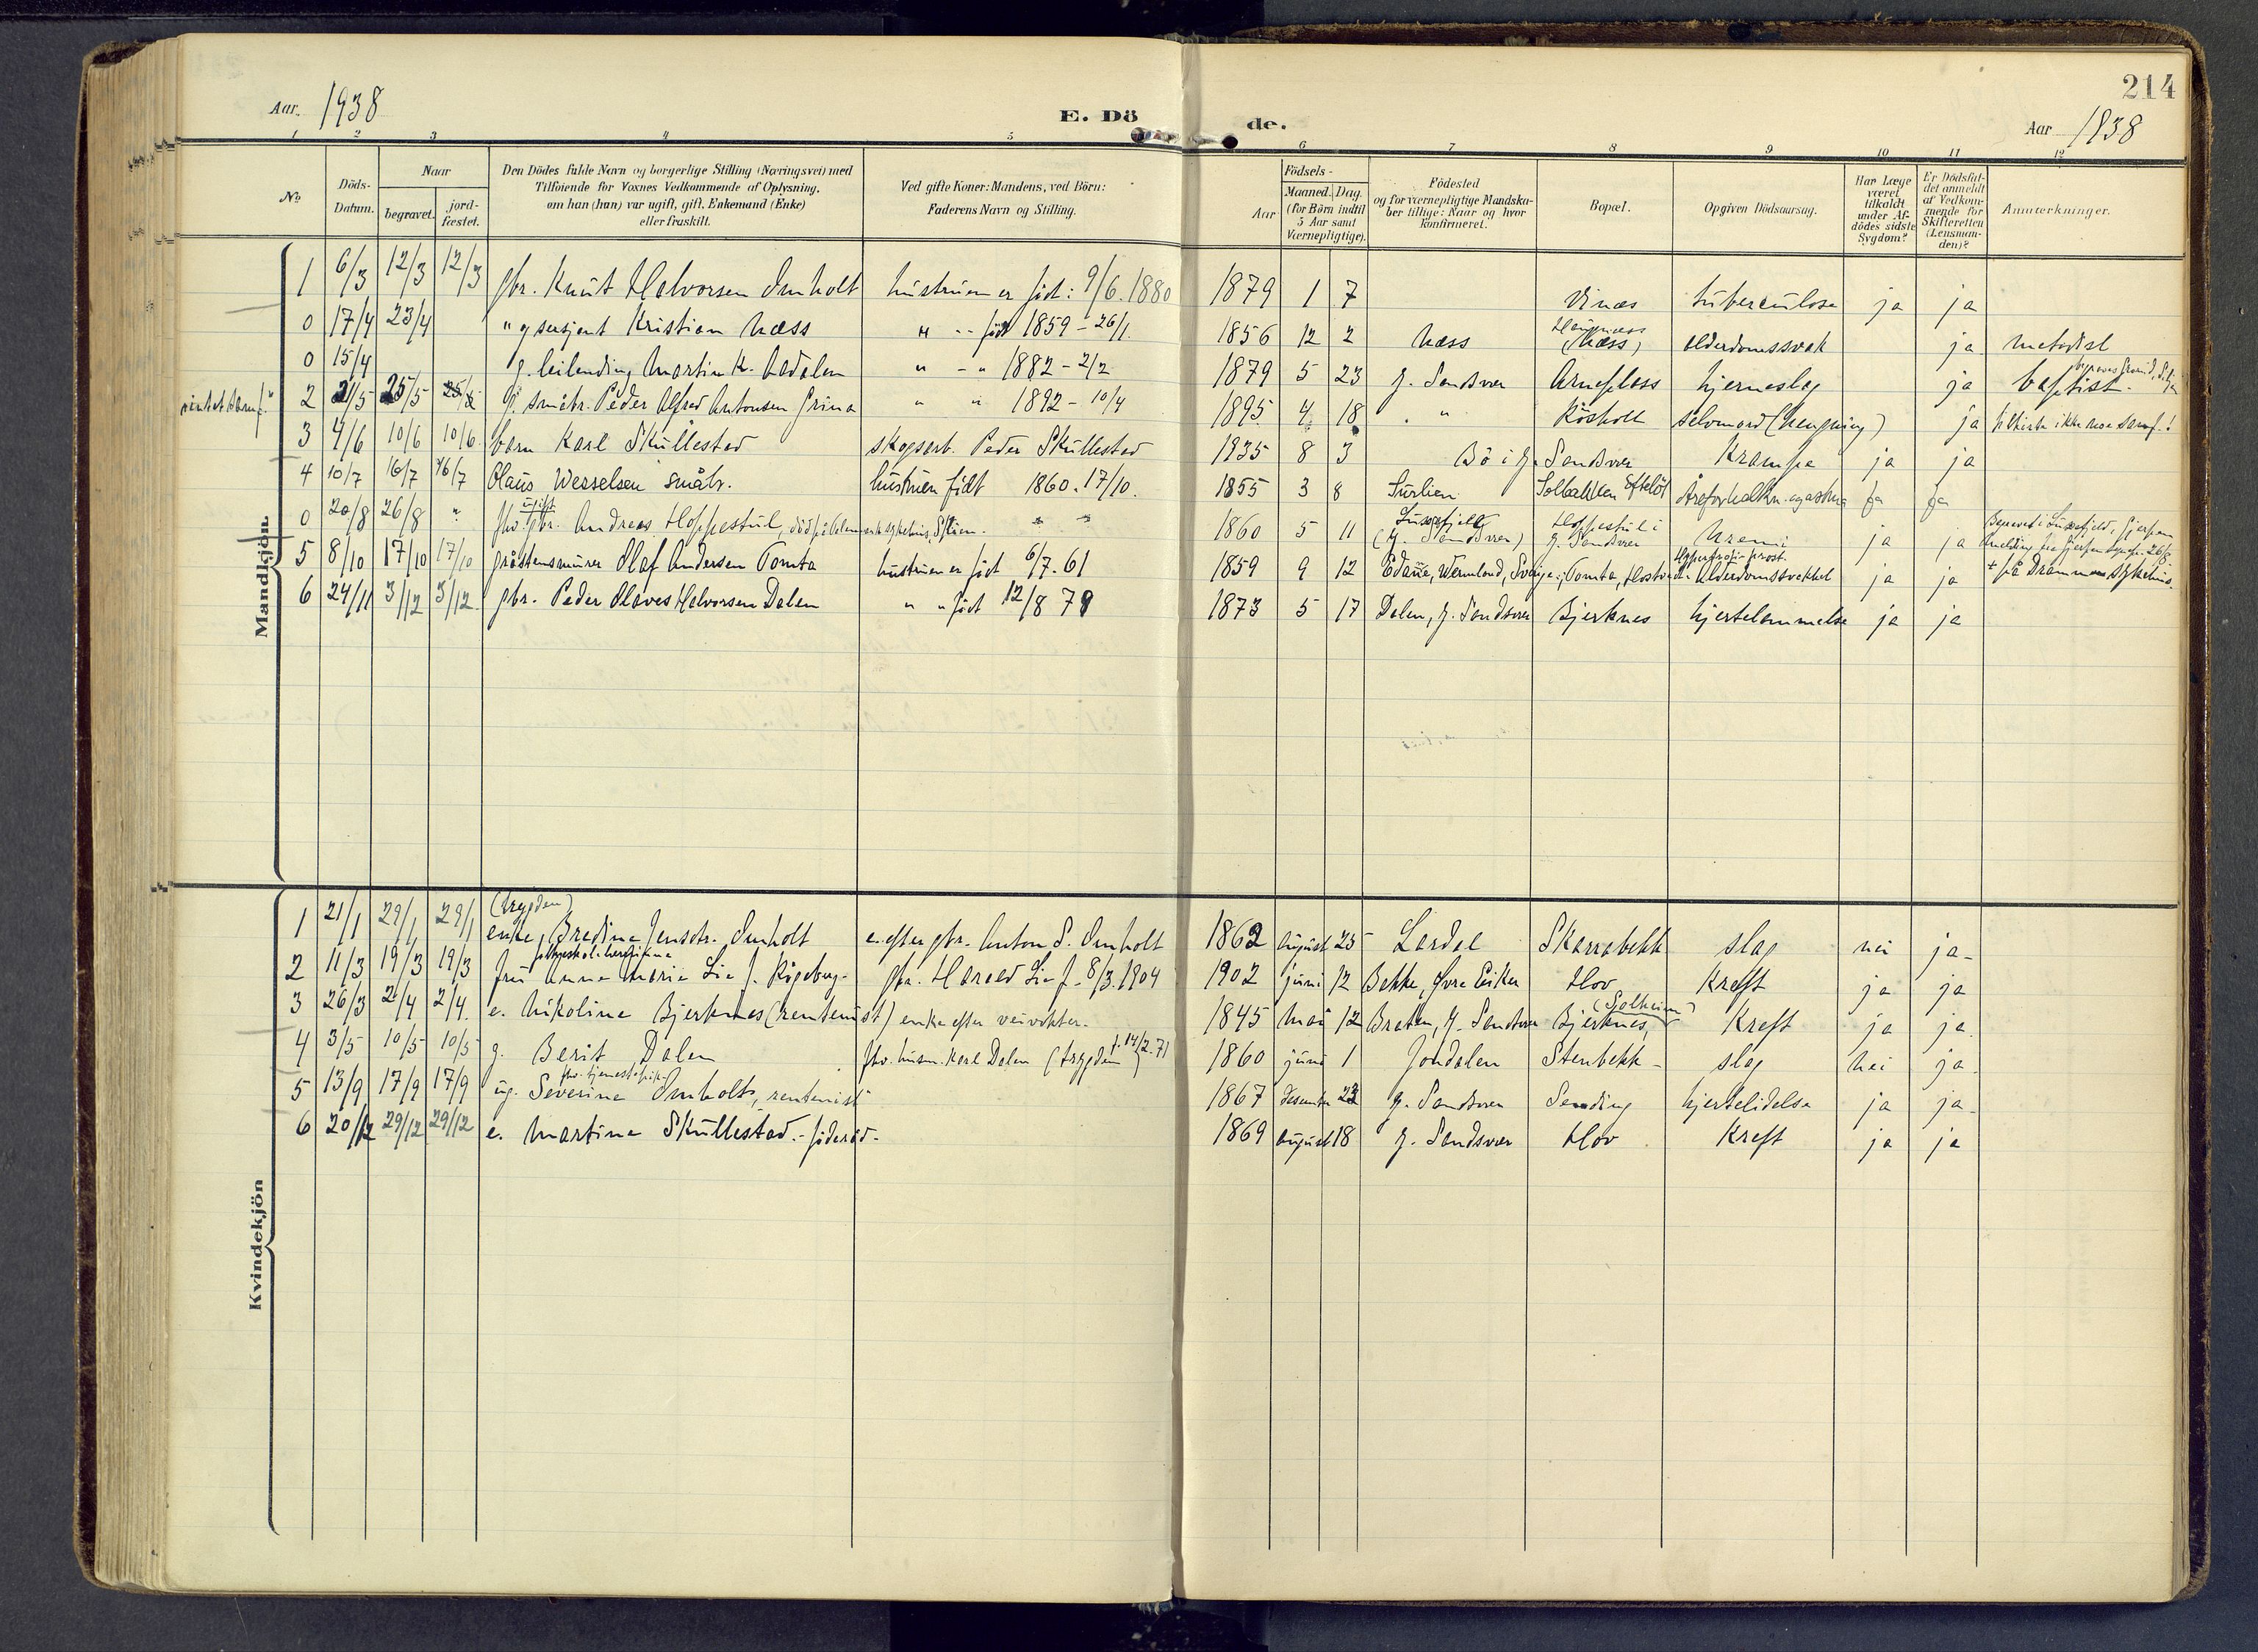 214
Aar. 1938
E. Dö de.
Aar 1938
1 2 3 4 5 6 7 8 9 10 11 12
No.
Döds-Datum.
Naar begravet. jord-fæstet.
Den Dödes fulde Navn og borgerlige Stilling (Næringsvei) med Tilföiende for Voxnes Vedkommende af Oplysning, om han (hun) var ugift, gift, Enkemand (Enke) eller fraskilt.
Ved gifte Koner: Mandens, ved Börn: Faderens Navn og Stilling.
Födsels-
Aar Maaned. Dag. (for Börn indtil 5 Aar samt Værnepligtige).
Födested og for værnepligtige Mandskaber tillige: Naar og hvor konfirmeret.
Bopæl.
Opgiven Dödsaarsag.
Har Læge været tilkaldt under Afdödes sidste Sygdom?
Er Dödsfaldet anmeldt af Vedkommende for Skifteretten (Lensmanden)?
Anmerkninger.
Mandkjön.
1 6/3 12/3 12/3 gbr. Knut Halvorsen Omholt hustruen er født: 9/6.1880 1879 1 7 Vinæs tuberculose ja ja
0 17/4 23/4 " g sersjant Kristian Næss " -- født 1859 - 26/1. 1856 12 2 Næss (Næss) alderdomssvak ja metodist
0 15/4 g. leilending Martin K. Aadalen " - " 1882 - 2/2 1879 5 23 Y. Sandsver Arneplass hjerneslag ja baptist.
2 21/5 25/5 25/5 g. småbr. Peder Alfred Antonsen Grina " " 1892 - 10/4 1895 4 18 " Kösholt selvmord (hengning) ja
3 4/6 10/6 10/6. barn Karl Skullestad skogsarb. Peder Skullestad 1935 8 3 Bö i Y. Sandsver Krampe ja ja
4 10/7 16/7 16/7 Olaus Wesselsen småbr. hustruen født 1860. 17/10. 1855 3 8 Surlien Solbakken Efteløt Åreforkalkn. og astma ja ja
0 20/8 26/8 " fhv. ugift gbr. Andreas Hoppestul, död på Blem sykehus, Skien. " " 1860 5 11 Luksefjell (Y. Sandsver) Hoppestul i Y. Sandsver Uremi ja ja Begravet i Luksefjeld, Gjerpen
5 8/10 17/10 17/10 gråstensmurer Olaf Andersen Tomta hustruen er født 6/7. 61 1859 9 12 Edane, Wermland, Sverige; Tomta, Hostvedt Hypertrofi-prost. Alderdomssvakhet ja ja + på Drammen sykehus.
6 24/11 3/12 3/12 gbr. Peder Olaves Halvorsen Dalen " " født 12/8 79 1873 5 17 Dalen, Y. Sandsver Bjerknes hjertelammelse ja ja
Kvindekjön
1 21/1 29/1 29/1 (trygden) enke, Bredine Jensdtr. Omholt e. efter gbr. Anton S. Omholt 1862 august 25 Lardal Skarrabekk slag nei ja -
2 11/3 19/3 19/3 fru Anna Maria Lie f. Rögeberg - gbr. Harald Lie f. 8/3.1904 1902 juni 12 Bekke, Övre Eiker Hov Kreft ja ja
3 26/3 2/4 2/4. e. Nikoline Bjerknes (rentenist) enke efter veivokter. 1845 mai 12 Braten, Y. Sandsver Bjerknes, (Solheim) Kreft ja ja.
4 3/5 10/5 10/5 g. Berit Dalen fhv. husm. Karl Dalen (trygden) f. 14/2. 71 1860 juni 1 Jondalen Stenbekk - slag nei ja.
5 13/9 17/9 17/9 ug. fhv. tjenestepike Severine Omholt, rentenist 1867 desember 23 Y. Sandsver Sending hjertelidelse ja ja -
6 20/12 29/12 29/12 e. Martine Skullestad. - föderåd - 1869 august 18 Y. Sandsver Hov Kreft ja ja